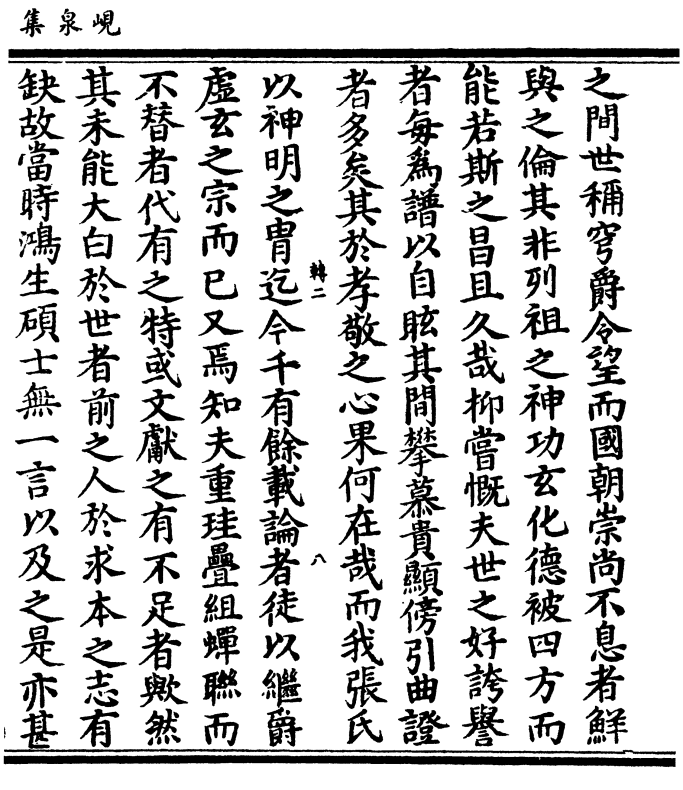 峴泉集
之間世稱穹爵令望而國朝崇尚不息者鮮
與之倫其非列祖之神功玄化德被四方而
能若斯之昌且久哉抑嘗慨夫世之好誇譽
者每為譜以自眩其間攀慕貴顯傍引曲證
者多矣其於孝敬之心果何在哉而我張氏
轉二
八
以神明之胄迄今千有餘載論者徒以繼爵
虛玄之宗而已又焉知夫重珪疊組蟬聯而
不替者代有之特或文獻之有不足者歟然
其未能大白於世者前之人於求本之志有
缺故當時鴻生碩士無一言以及之是亦甚